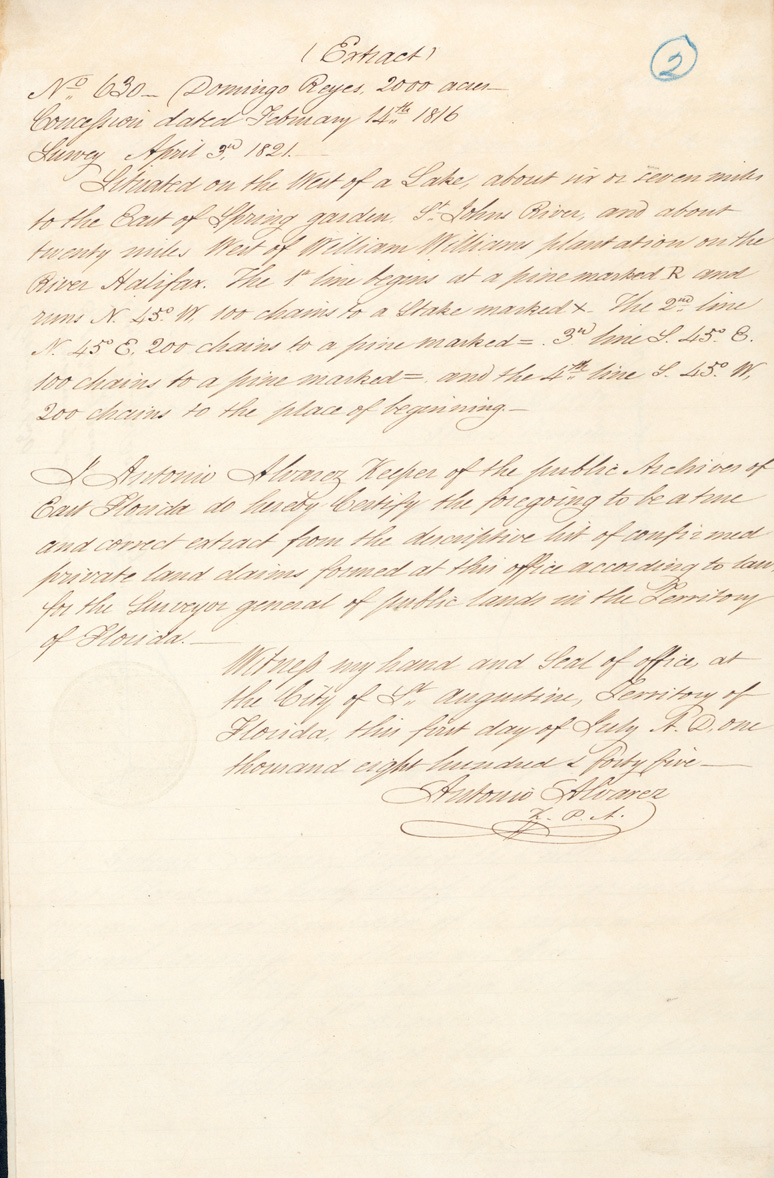 (Extract)
2
No. 630_ Domingo Reyes, 2000 acres_
Concession dated February 14th 1816
Survey April 3rd, 1821._
Situated on the West of a Lake, about six or seven miles
to the East of Spring garden, St. Johns River, and about
twenty miles West of William Williams plantation on the
River Halifax. The 1st line begins at a pine marked R and
runs N. 45° W, 100 chains to a Stake marked X. The 2nd line
N. 45° E, 200 chains to a pine marked =. 3rd line S. 45° E.
100 chains to a pine marked = and the 4th line S. 45° W,
200 chains to the place of beginning._
I Antonio Alvarez Keeper of the public Archives of
East Florida do hereby Certify the foregoing to be a true
and correct extract from the descriptive list of confirmed
private land claims formed at this office according to law
for the Surveyor general of public lands in the Territory
of Florida._
Witness my hand and Seal of office, at
the City of St. Augustine, Territory of
Florida, this first day of July A. D. one
thousand eight hundred & forty five_
Antonio Alvarez
K. P. A.